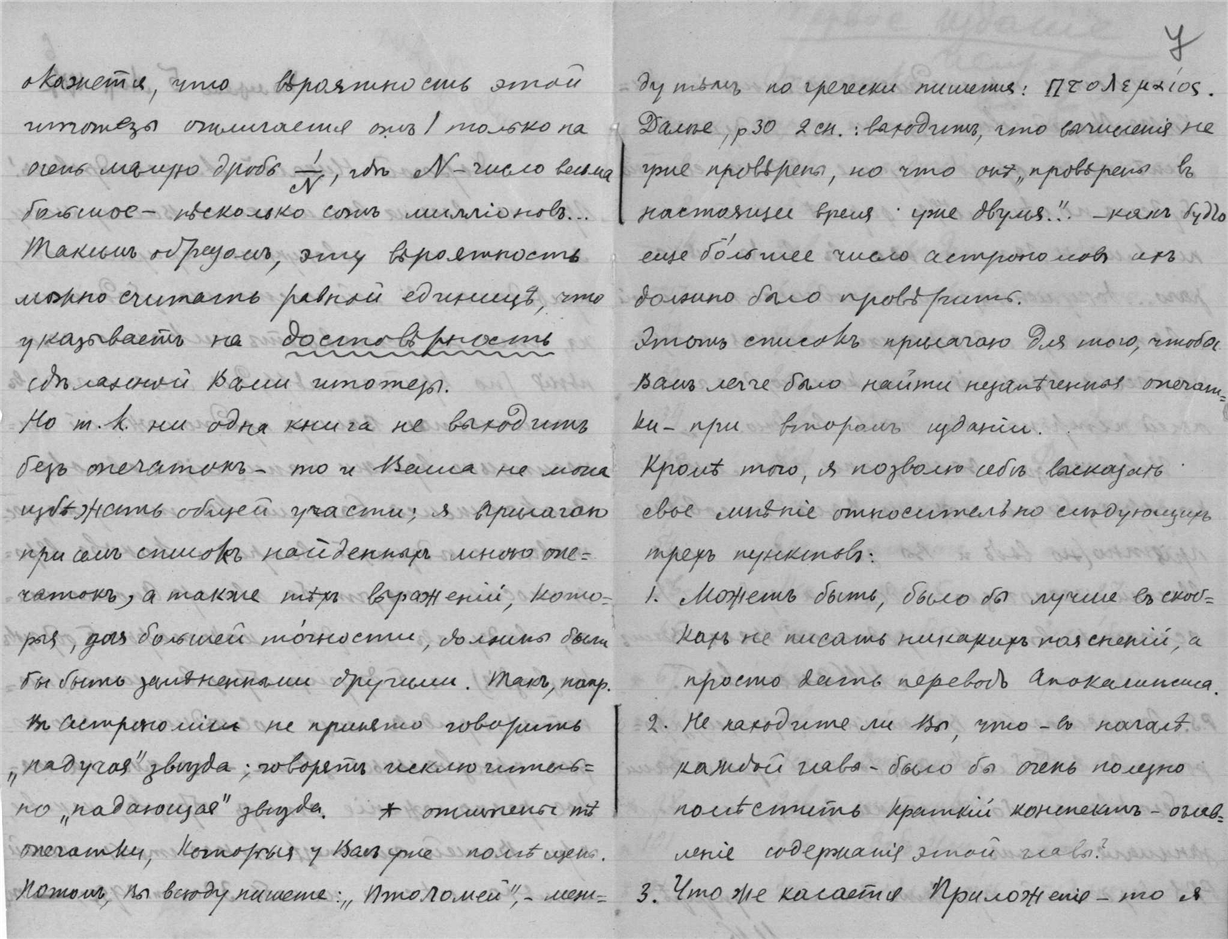 окажется, что вѣроятность этой
гипотезы отличается отъ 1 только на
очень малую дробь 1/N, гдѣ N – число весьма
большое – нѣсколько сотъ миллiоновъ...
Такимъ образомъ, эту вѣроятность
можно считать равной единицѣ, что
указываетъ на достовѣрность
сдѣланной Вами гипотезы.
Но т. к. ни одна книга не выходитъ
безъ опечатокъ – то и Ваша не могла
избѣжать общей участи; я прилагаю
при семъ списокъ найденныхъ мною опе=
чатокъ, а также тѣхъ выраженiй, кото=
рыя, для большей точности, должны были
бы быть замѣненными другими. Такъ, напр.
въ астрономiи не принято говорить
„падучая" звѣзда; говорятъ исключитель=
но „падающая" звѣзда. * отмѣчены тѣ
опечатки, которыя у Васъ уже помѣщены.
Потомъ, Вы всюду пишете: „Птоломей", – меж=
7
ду тѣмъ по гречески пишется: Πτολεμαίος.
Далѣе, р 30 2 сн.: выходитъ, что вычисленiя не
уже провѣрены, но что онѣ „провѣрены въ
настоящее время уже двумя..". – какъ будто
еще бо́льшее число астрономовъ ихъ
должно было провѣрить.
Этотъ списокъ прилагаю для того, чтобы
Вамъ легче было найти незамѣченныя опечат=
ки – при второмъ изданiи.
Кромѣ того, я позволю себѣ высказать
свое мнѣнiе относительно слѣдующихъ
трехъ пунктовъ:
1. Можетъ быть, было бы лучше въ скоб=
кахъ не писать никакихъ поясненiй, а
просто дать переводъ Апокалипсиса.
2. Не находите ли Вы, что – въ началѣ
каждой главы – было бы очень полезно
помѣстить краткiй конспектъ – оглав=
ленiе содержанiя этой главы?
3. Что же касается Приложенiя – то я